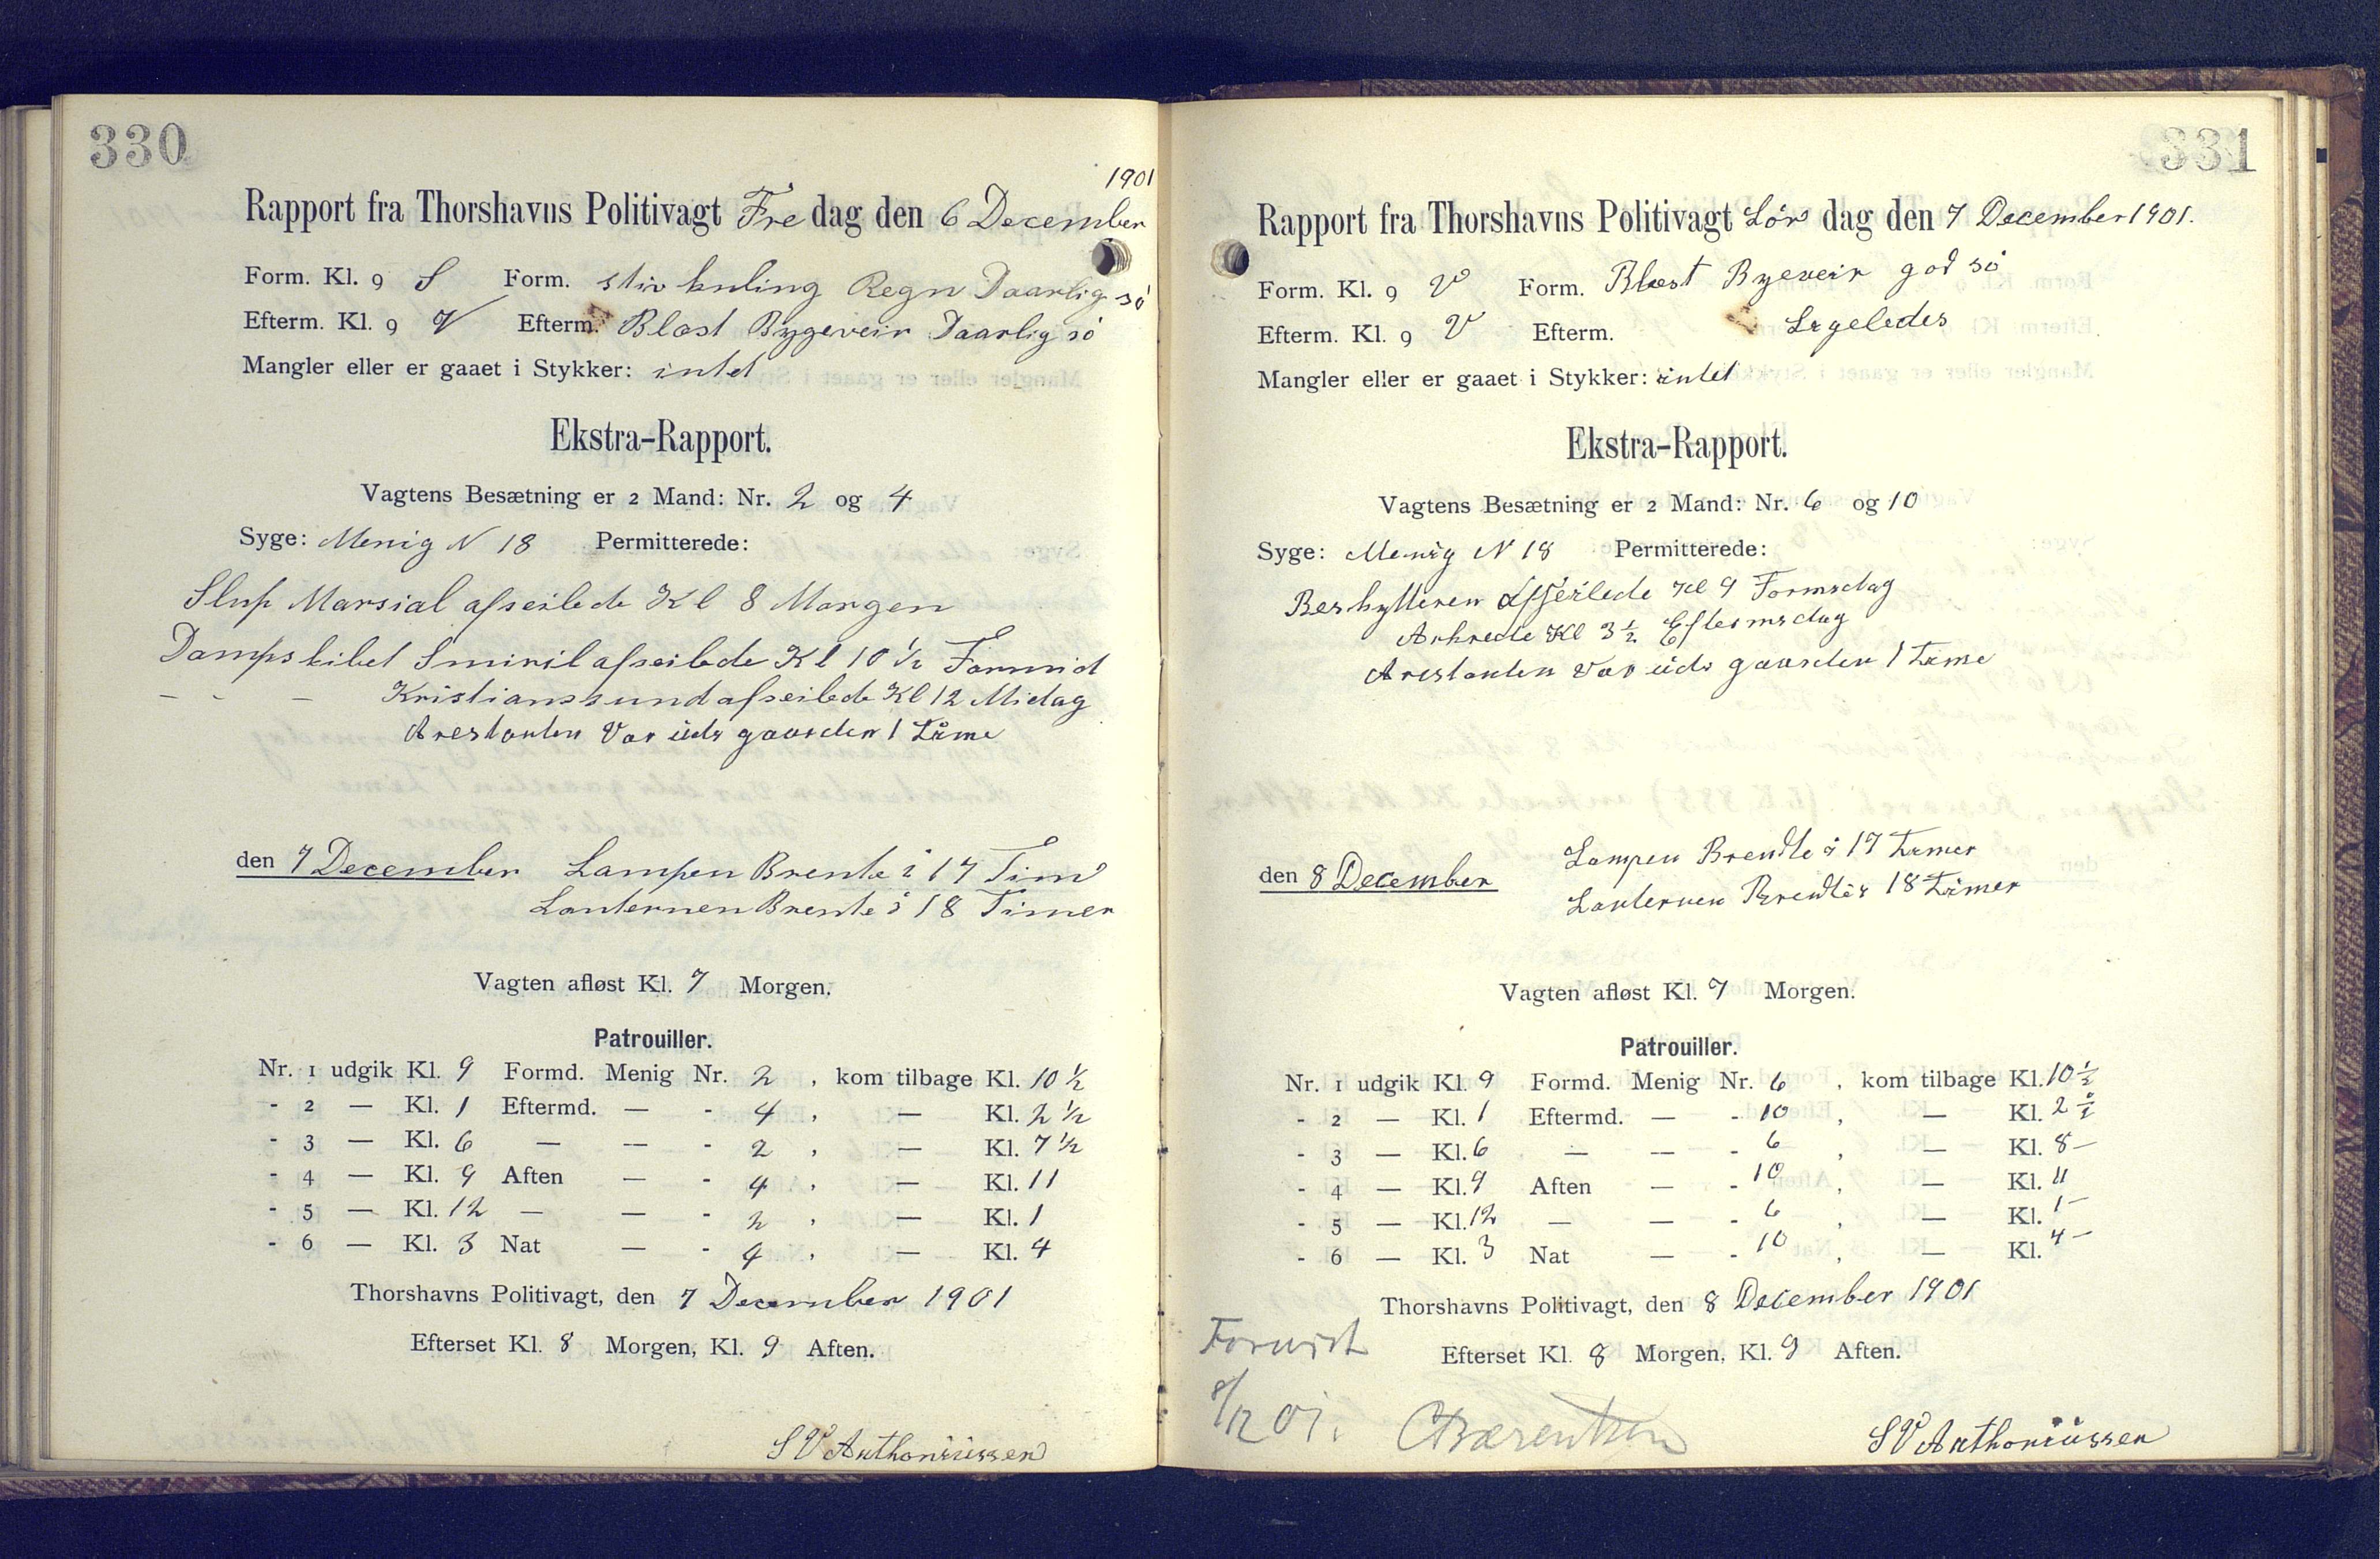 330
1901
Rapport fra Thorshavns Politivagt Fredag den 6 December
Form. Kl. 9 S Form. stiv kuling Regn Daarlig sö
Efterm. Kl. 9 V Efterm. Blæst Bygeveir Daarlig sö
Mangler eller er gaaet i Stykker: intet
Ekstra-Rapport.
Vagtens Besætning er 2 Mand: Nr. 2 og 4
Syge: Menig N 18 Permitterede:
Slup Marsial afseilede Kl 8 Morgen
Dampskibet Smiril afseilede Kl 10 ½ Formid
- - - Kristianssund afseilede Kl 12 Midag
Arestanten Var uds gaarden 1 Time
den 7 December Lampen Brente i 17 Tim
Lanternen Brente i 18 Timer
Vagten afløst Kl. 7 Morgen.
Patrouiller.
Nr. 1 udgik Kl. 9 Formd. Menig Nr. 2, kom tilbage Kl. 10 ½
- 2 — Kl. 1 Eftermd. — - 4, — Kl. 2 ½
- 3 — Kl. 6 — — - 2, — Kl. 7 ½
- 4 — Kl. 9 Aften — - 4, — Kl. 11
- 5 — Kl. 12 — — - 2, — Kl. 1
- 6 — Kl. 3 Nat — - 4, — Kl. 4
Thorshavns Politivagt, den 7 December 1901
Efterset Kl. 8 Morgen, Kl. 9 Aften.
S V Anthoniussen
331
Rapport fra Thorshavns Politivagt Lör dag den 7 December 1901.
Form. Kl. 9 V Form. Blæst Byeveir god sö
Efterm. Kl. 9 V Efterm. Ligeledes
Mangler eller er gaaet i Stykker: intet
Ekstra-Rapport.
Vagtens Besætning er 2 Mand: Nr. 6 og 10
Syge: Menig N 18 Permitterede:
Beskytteren Afseilede Kl 9 Formsdag
Ankrede Kl 3 ½ Eftermsdag
Arestanten Var uds gaarden 1 Time
den 8 December Lampen Brendte i 17 Timer
Lanternen Brendte i 18 Timer
Vagten afløst Kl. 7 Morgen.
Patrouiller.
Nr. 1 udgik Kl. 9 Formd. Menig Nr. 6, kom tilbage Kl. 10 ½
- 2 — Kl. 1 Eftermd. — - 10, — Kl. 2 ½
- 3 — Kl. 6 — — - 6, — Kl. 8 –
- 4 — Kl. 9 Aften — - 10, — Kl. 11
- 5 — Kl. 12 — — - 6, — Kl. 1 –
- 6 — Kl. 3 Nat — - 10, — Kl. 4 –
Thorshavns Politivagt, den 8 December 1901
Efterset Kl. 8 Morgen, Kl. 9 Aften.
Forevist
8/12 01. CBærentsen
S V Anthoniussen